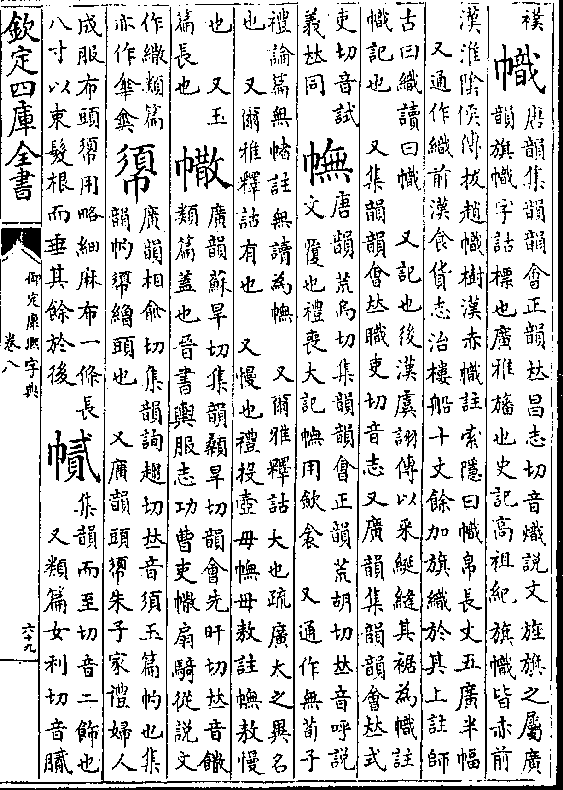 欽定四庫全書
御定康熙字典
卷八
六十九
襆
幟
唐韻集韻韻會正韻𠀤昌志切音熾說文旌旗之屬廣
韻旗幟字詁標也廣雅旛也史記高祖紀旗幟皆赤前
漢淮陰侯傳拔趙幟樹漢赤幟註索隱曰幟帛長丈五廣半幅
又通作織前漢食貨志治樓船十丈餘加旗織於其上註師
古曰織讀曰幟 又記也後漢虞詡傳以采綖縫其裾為幟註
幟記也 又集韻韻會𠀤職吏切音志又廣韻集韻韻會𠀤式
吏切音試
義𠀤同
幠
唐韻荒烏切集韻韻會正韻荒胡切𠀤音呼說
文覆也禮喪大記幠用歛衾 又通作無荀子
禮論篇無幠註無讀為幠 又爾雅釋詁大也疏廣大之異名
也 又爾雅釋詁有也 又慢也禮投壺毋幠毋敖註幠敖慢
也 又玉
篇長也
𢄻
廣韻蘇旱切集韻顙旱切韻會先旰切𠀤音饊
類篇蓋也晉書輿服志功曹吏𢄻扇騎從說文
作繖類篇
亦作傘
𢄼
廣韻相俞切集韻詢趨切𠀤音須玉篇帕也集
韻帕𢄼繒頭也 又廣韻頭𢄼朱子家禮婦人
成服布頭𢄼用略細麻布一條長
八寸以束髮根而垂其餘於後
㡨
集韻而至切音二飾也
又類篇女利切音膩